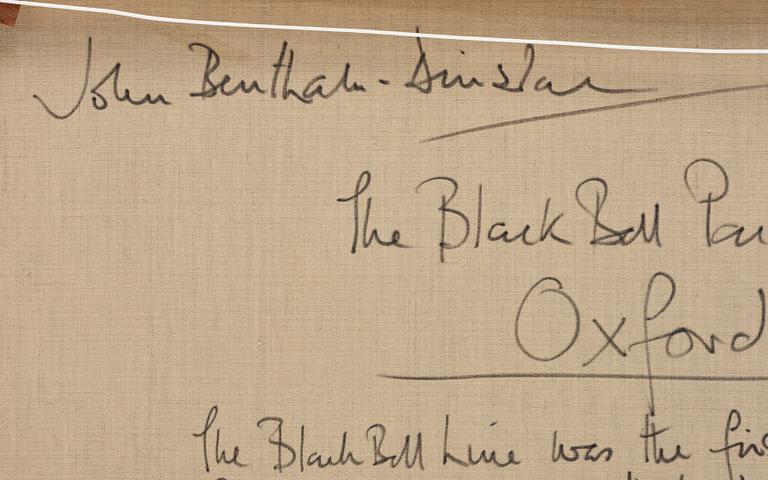 John Bentham-Dinsdale
The Black Ball Pa
Oxford
The Black Ball Line was the firs